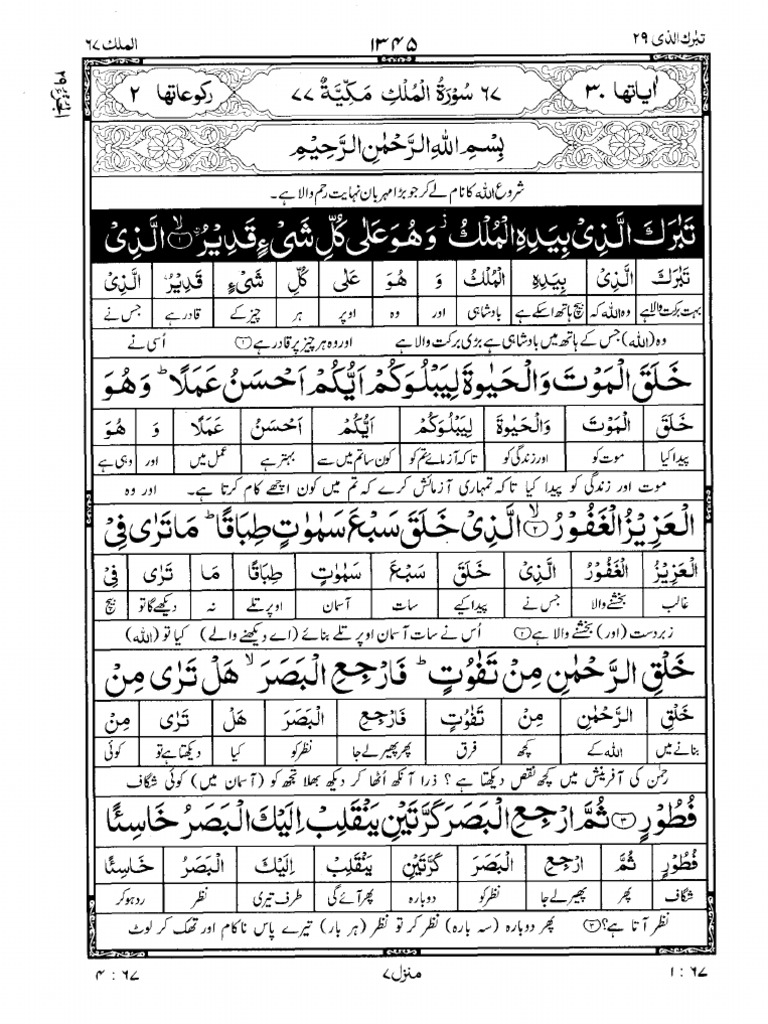 تبٰرك الذی ۲۹ ۱۳۴۵ الملك ۶۷
اٰیاتها ۳۰ ۶۷ سُوْرَةُ الْمُلْكِ مَكِّيَّةٌ ۷۷ ركوعاتها ۲
بِسْمِ اللهِ الرَّحْمٰنِ الرَّحِيْمِ
شروع الله کا نام لے کر جو بڑا مہربان نہایت رحم والا ہے۔
تَبٰرَكَ الَّذِيْ بِيَدِهِ الْمُلْكُ ز وَهُوَ عَلٰى كُلِّ شَيْءٍ قَدِيْرُ ۙ﴿۱﴾ الَّذِيْ
تَبٰرَكَ الَّذِيْ بِيَدِهِ الْمُلْكُ وَ هُوَ عَلٰى كُلِّ شَيْءٍ قَدِيْرُ الَّذِيْ
بہت برکت والا ہے وہ الله کہ بیچ ہاتھ اسکے ہے بادشاہی اور وہ اوپر ہر چیز کے قادر ہے جس نے
وہ (الله) جس کے ہاتھ میں بادشاہی ہے بڑی برکت والا ہے اور وہ ہر چیز پر قادر ہے ﴿۱﴾ اُسی نے
خَلَقَ الْمَوْتَ وَالْحَيٰوةَ لِيَبْلُوَكُمْ اَيُّكُمْ اَحْسَنُ عَمَلًا ؕ وَهُوَ
خَلَقَ الْمَوْتَ وَالْحَيٰوةَ لِيَبْلُوَكُمْ اَيُّكُمْ اَحْسَنُ عَمَلًا وَ هُوَ
پیدا کیا موت کو اور زندگی کو تاکہ آزمائے تم کو کون سا تم میں سے بہتر ہے عمل میں اور وہی ہے
موت اور زندگی کو پیدا کیا تاکہ تمہاری آزمائش کرے کہ تم میں کون اچھے کام کرتا ہے۔ اور وہ
الْعَزِيْزُ الْغَفُوْرُ ۙ﴿۲﴾ الَّذِيْ خَلَقَ سَبْعَ سَمٰوٰتٍ طِبَاقًا ؕ مَا تَرٰى فِيْ
الْعَزِيْزُ الْغَفُوْرُ الَّذِيْ خَلَقَ سَبْعَ سَمٰوٰتٍ طِبَاقًا مَا تَرٰى فِيْ
غالب بخشنے والا جس نے پیدا کیے سات آسمان اوپر تلے نہ دیکھے گا تو بیچ
زبردست (اور) بخشنے والا ہے ﴿۲﴾ اُس نے سات آسمان اوپر تلے بنائے (اے دیکھنے والے) کیا تو (الله)
خَلْقِ الرَّحْمٰنِ مِنْ تَفٰوُتٍ ؕ فَارْجِعِ الْبَصَرَ ۙ هَلْ تَرٰى مِنْ
خَلْقِ الرَّحْمٰنِ مِنْ تَفٰوُتٍ فَارْجِعِ الْبَصَرَ هَلْ تَرٰى مِنْ
بنانے میں الله کے کچھ فرق پھر پھیر لے جا نظر کو کیا دیکھتا ہے تو کوئی
رحمٰن کی آفرینش میں کچھ نقص دیکھتا ہے ؟ ذرا آنکھ اُٹھا کر دیکھ بھلا تجھ کو (آسمان میں) کوئی شگاف
فُطُوْرٍ ﴿۳﴾ ثُمَّ ارْجِعِ الْبَصَرَ كَرَّتَيْنِ يَنْقَلِبْ اِلَيْكَ الْبَصَرُ خَاسِئًا
فُطُوْرٍ ثُمَّ ارْجِعِ الْبَصَرَ كَرَّتَيْنِ يَنْقَلِبْ اِلَيْكَ الْبَصَرُ خَاسِئًا
شگاف پھر پھیر لے جا نظر کو دوبارہ پھر آئے گی طرف تیری نظر رد ہو کر
نظر آتا ہے؟ ﴿۳﴾ پھر دوبارہ (سہ بارہ) نظر کر تو نظر (ہر بار) تیرے پاس ناکام اور تھک کر لوٹ
۶۷ : ۱ منزل ۷ ۶۷ : ۴